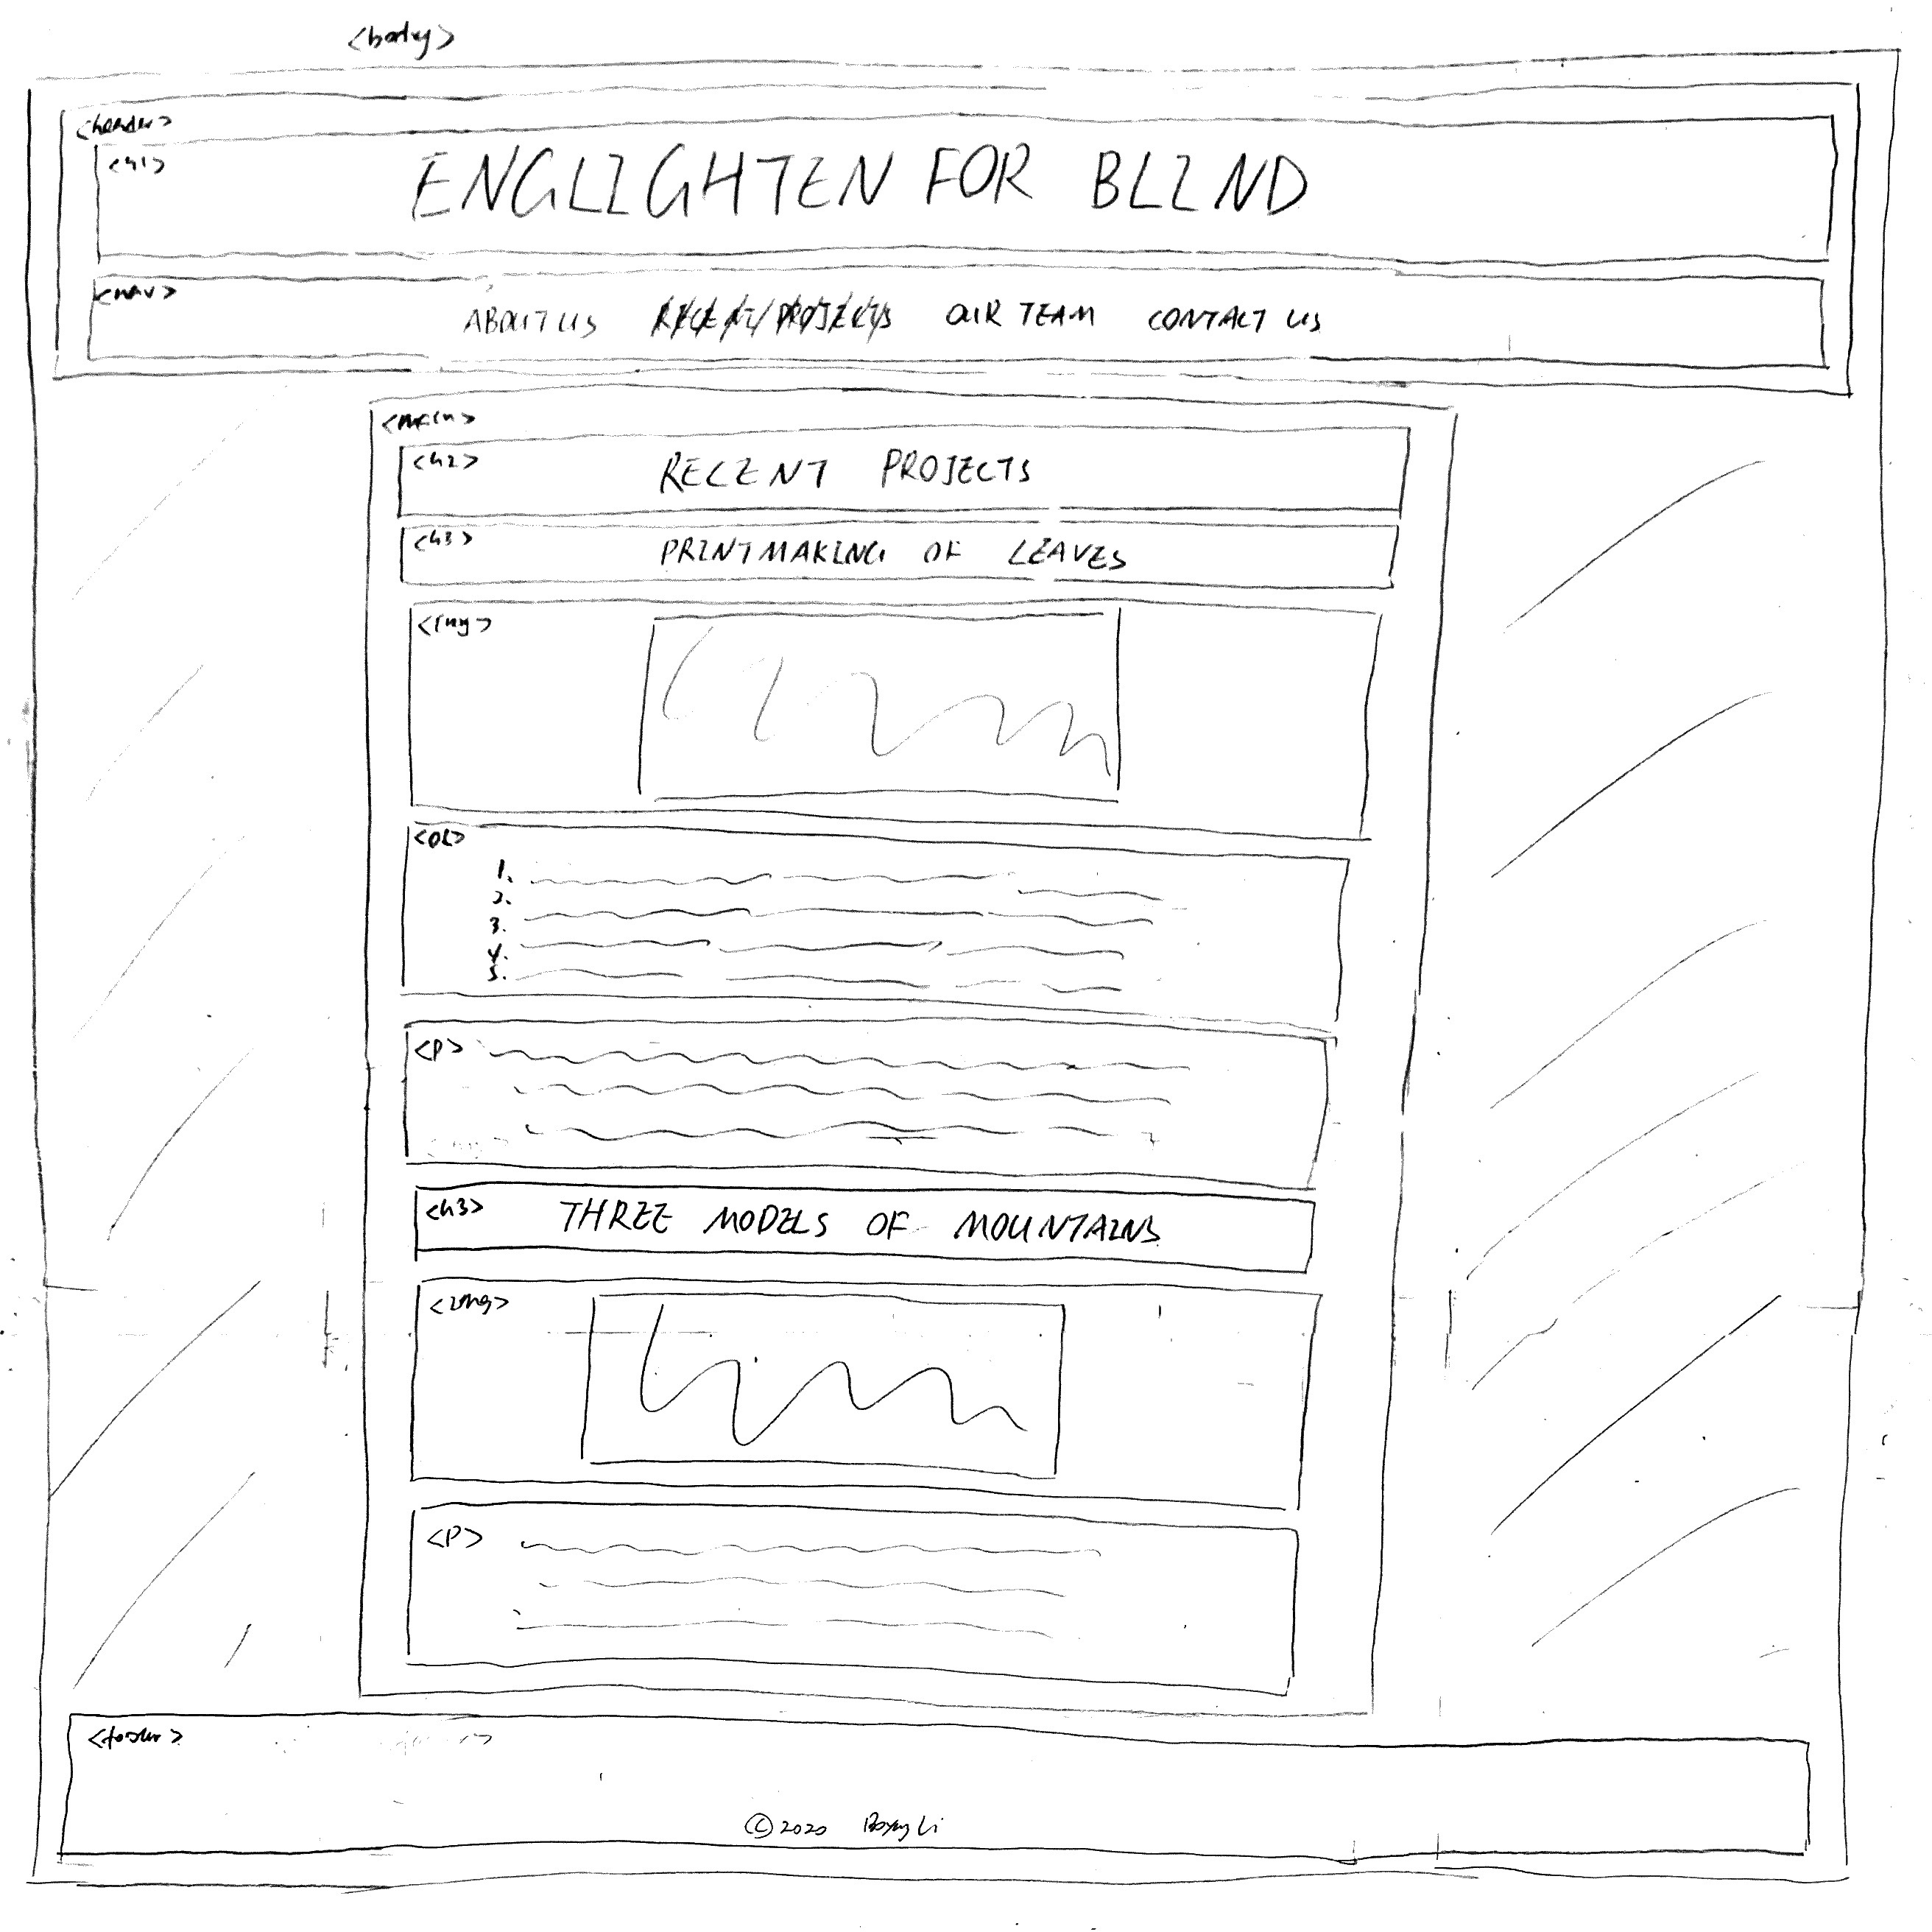 <body>
<header>
<h1>
ENGLIGHTEN FOR BLIND
<nav>
ABOUT US RECENT PROJECTS OUR TEAM CONTACT US
<main>
<h2> RECENT PROJECTS
<h3> PRINTMAKING OF LEAVES
<img>
<OL>
1.
2.
3.
4.
5.
<P>
<h3> THREE MODELS OF MOUNTAINS
<img>
<P>
<footer>
©2020 Li